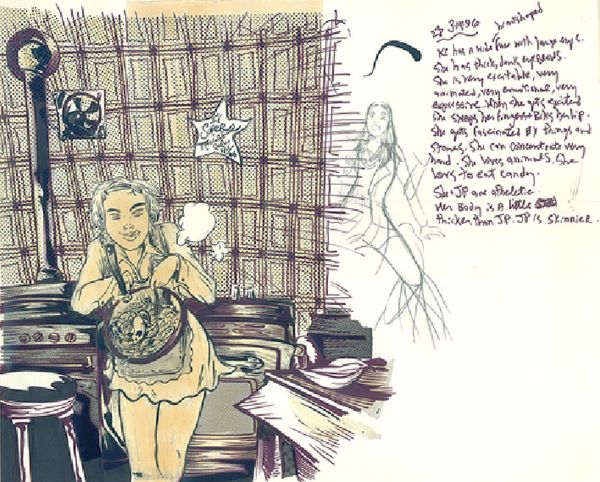 ☆ 31486 heartshaped
KC has a wide face with large eyes.
She has thick, dark eyebrows.
She is very excitable, very
animated, very emotional, very
expressive. When she gets excited
she snaps her fingers & bites her lip.
She gets fascinated by things and
stories. She can concentrate very
hard. She loves animals. She
loves to eat candy.
She & JP are atheletic.
Her body is a little
thicker than JP. JP is skinnier.